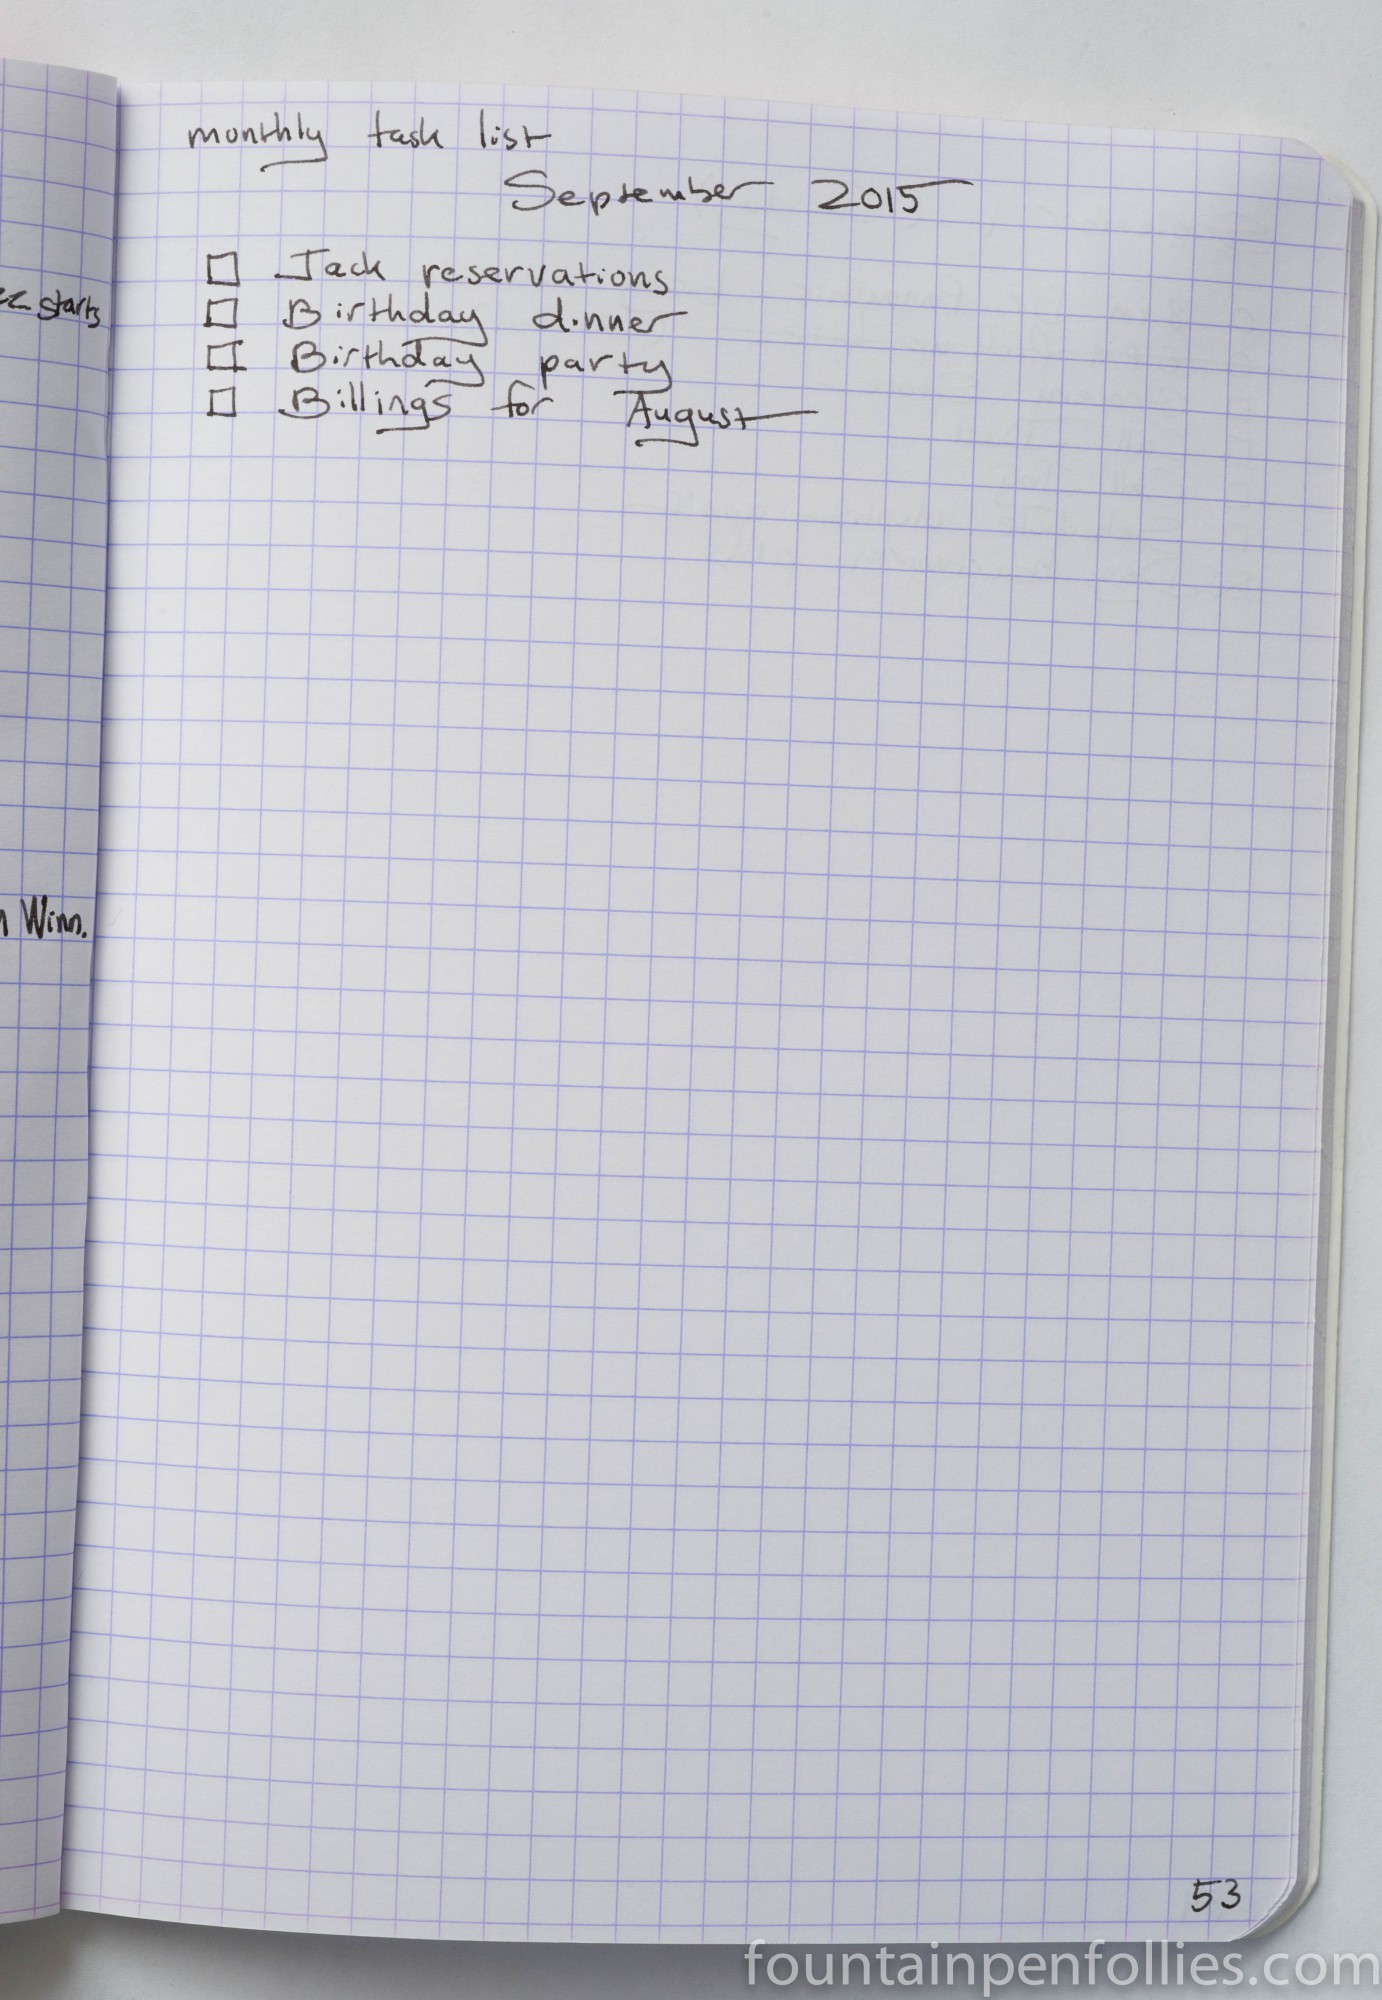 monthly task list
September 2015
Jack reservations
Birthday dinner
Birthday party
Billings for August
starts
Winn.
53
fountainpenfollies.com